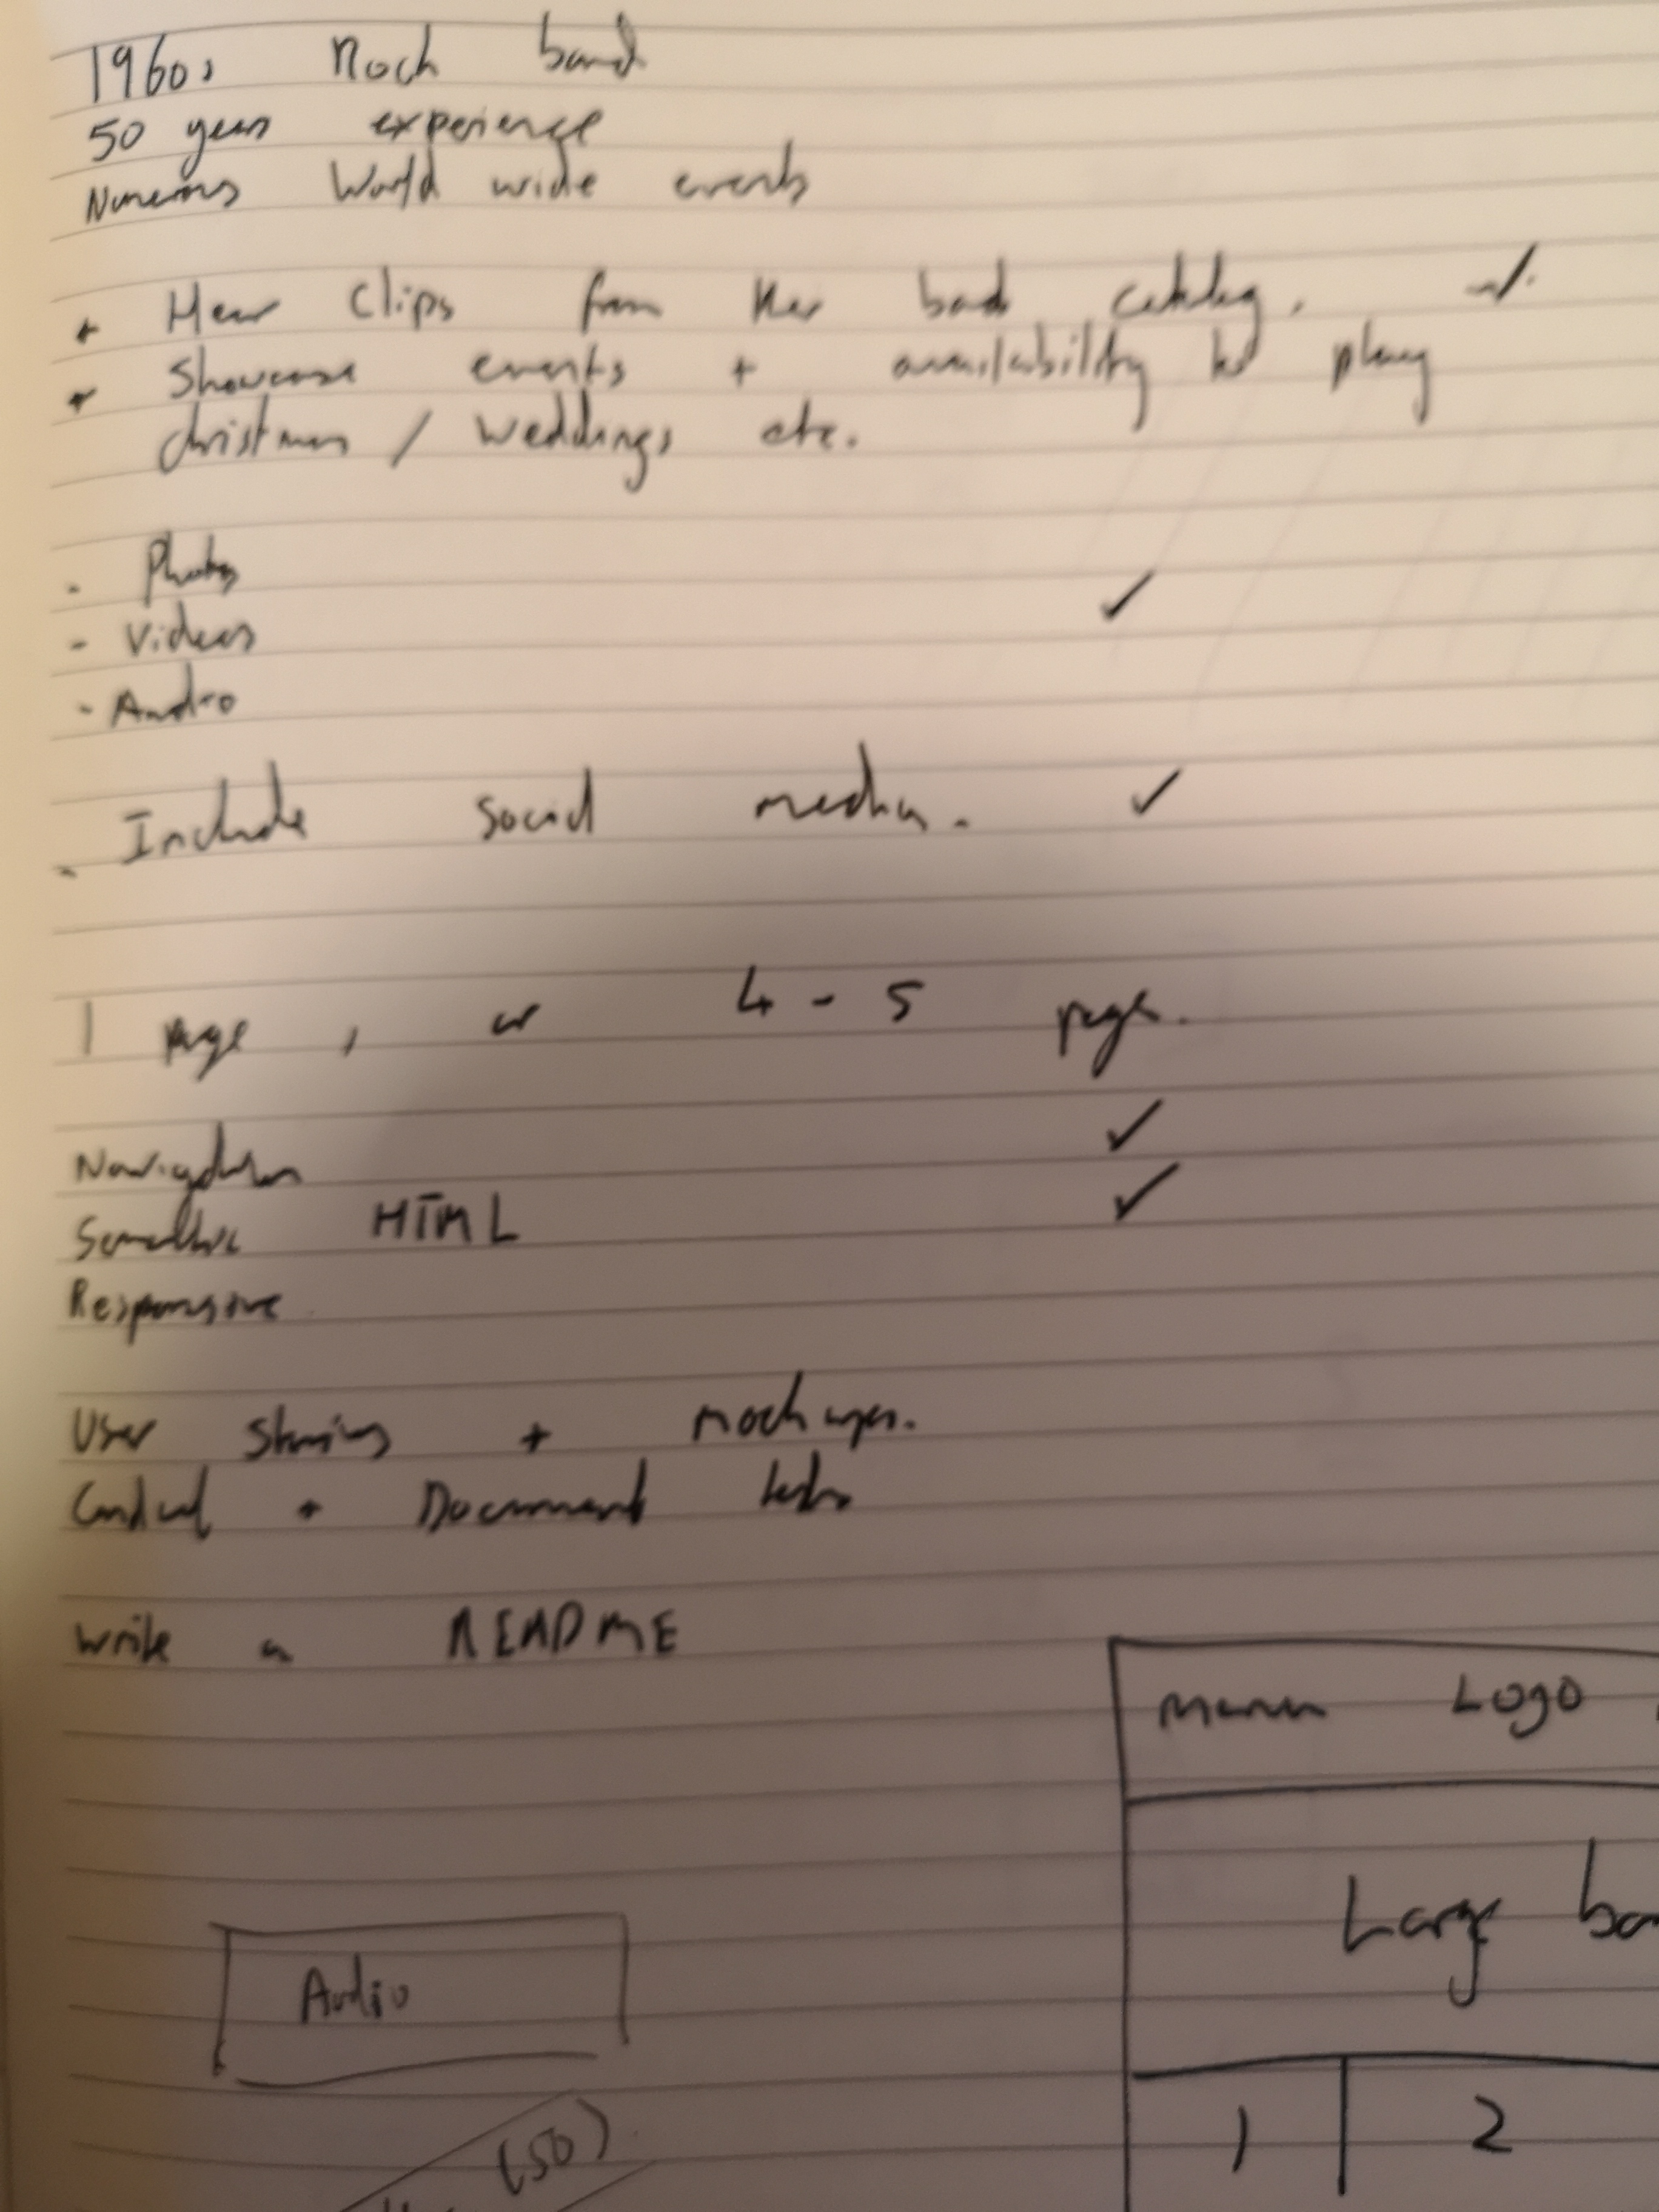 1960s Rock band
50 years experience
Numerous World wide events
+ Hear Clips from their back catalog.
+ Showcase events + availability to play
christmas / weddings etc.
- Photos
✓
- Videos
- Audio
- Include social media. ✓
1 page, or 4 - 5 page.
Navigation ✓
Semantic HTML ✓
Responsive
User stories + mockups.
Conduct + Document tests
write a README
menu Logo
Large
Audio
1 2
(50)